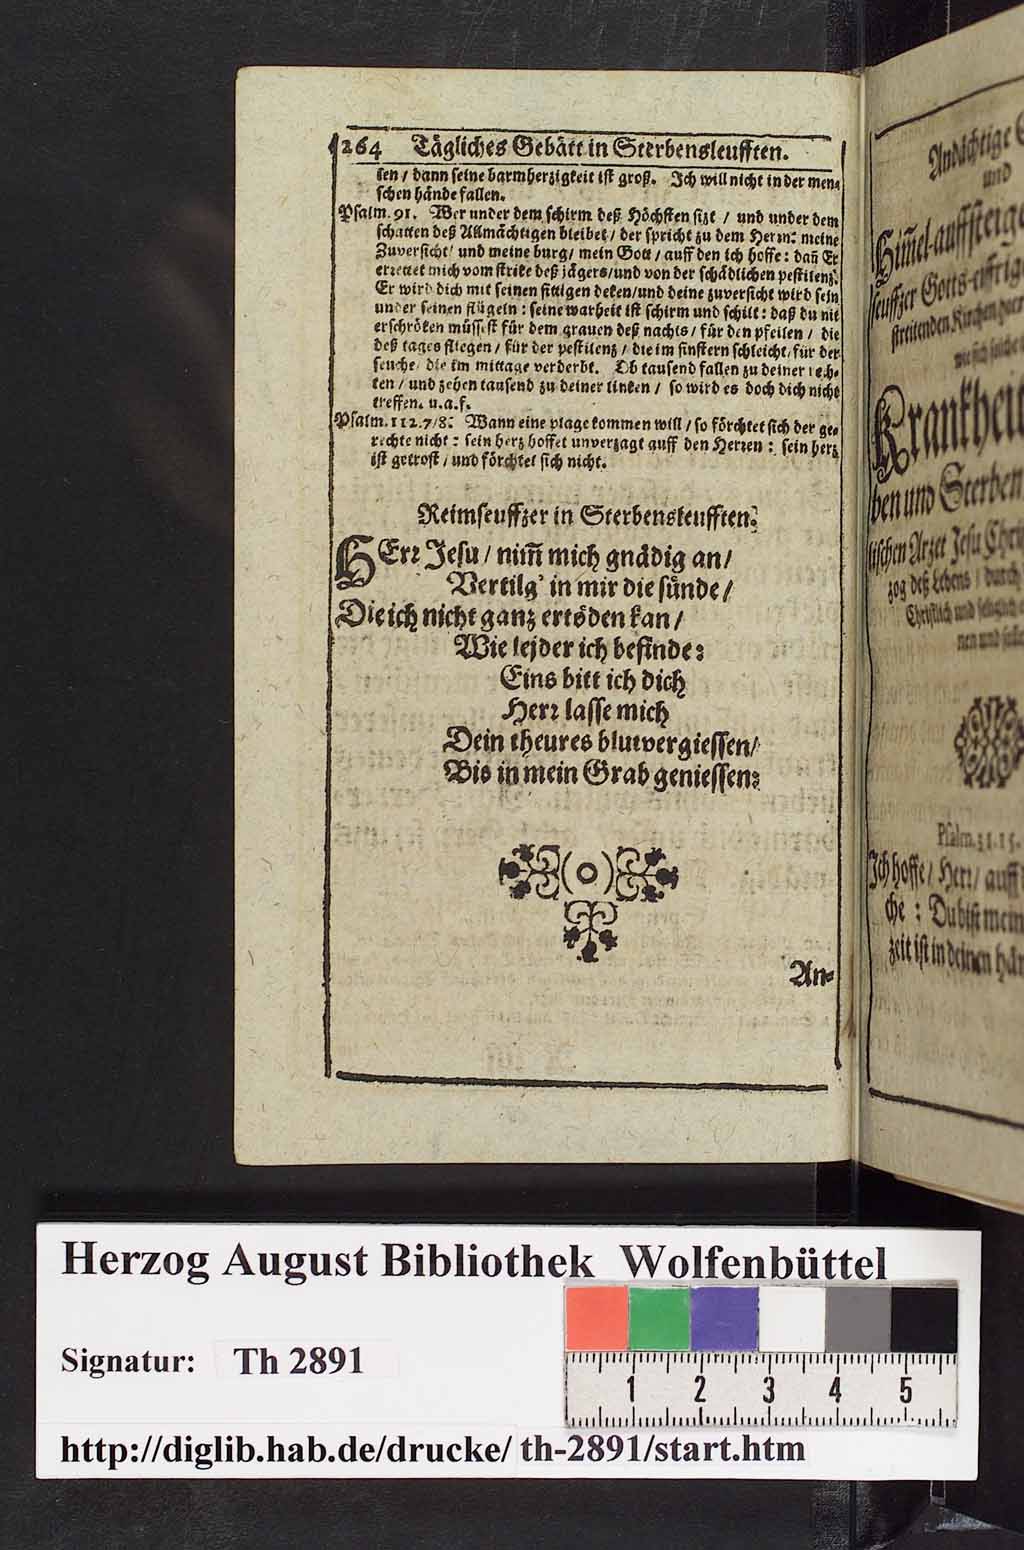 264 Tägliches Gebätt in Sterbensleufften.
len / dann seine barmherzigkeit ist groß. Ich will nicht in der men-
schen hände fallen.
Psalm. 91. Wer under dem schirm deß Höchsten sizt / und under dem
schatten deß Allmächtigen bleibet / der spricht zu dem Herrn: meine
Zuversicht / und meine burg / mein Gott / auff den ich hoffe: dañ Er
errettet mich vom strike deß jägers / und von der schädlichen pestilenz.
Er wird dich mit seinen fittigen deken / und deine zuversicht wird sein
under seinen flügeln: seine warheit ist schirm und schilt: daß du nit
erschröken müssest für dem grauen deß nachts / für den pfeilen / die
deß tages fliegen / für der pestilenz / die im finstern schleicht / für der
seuche / die im mittage verderbt. Ob tausend fallen zu deiner rech-
ten / und zehen tausend zu deiner linken / so wird es doch dich nicht
treffen. u.a.f.
Psalm. 112.7/8. Wann eine plage kommen will / so förchtet sich der ge-
rechte nicht: sein herz hoffet unverzagt auff den Herren: sein herz
ist getrost / und förchtet sich nicht.
Reimseuffzer in Sterbensleufften.
HErr Jesu / nim̃ mich gnädig an /
Vertilg' in mir die sünde /
Die ich nicht ganz ertöden kan /
Wie lejder ich befinde:
Eins bitt ich dich
Herr lasse mich
Dein theures blutvergiessen /
Bis in mein Grab geniessen:
( o )
An-
Andächtige
und
Him̃el-auffsteige
seuffzer Gotts-eiffrig
streitenden Kirchen
Krankheit
ben und Sterben
lischen Arzet Jesu Chri
zog deß Lebens / durch
Christlich und seliglich
nen und
Psalm. 31.15.
Ich hoffe / Herr / auff
che: Du bist mein
zeit ist in deinen hän
Herzog August Bibliothek Wolfenbüttel
Signatur: Th 2891
1 2 3 4 5
http://diglib.hab.de/drucke/ th-2891/start.htm